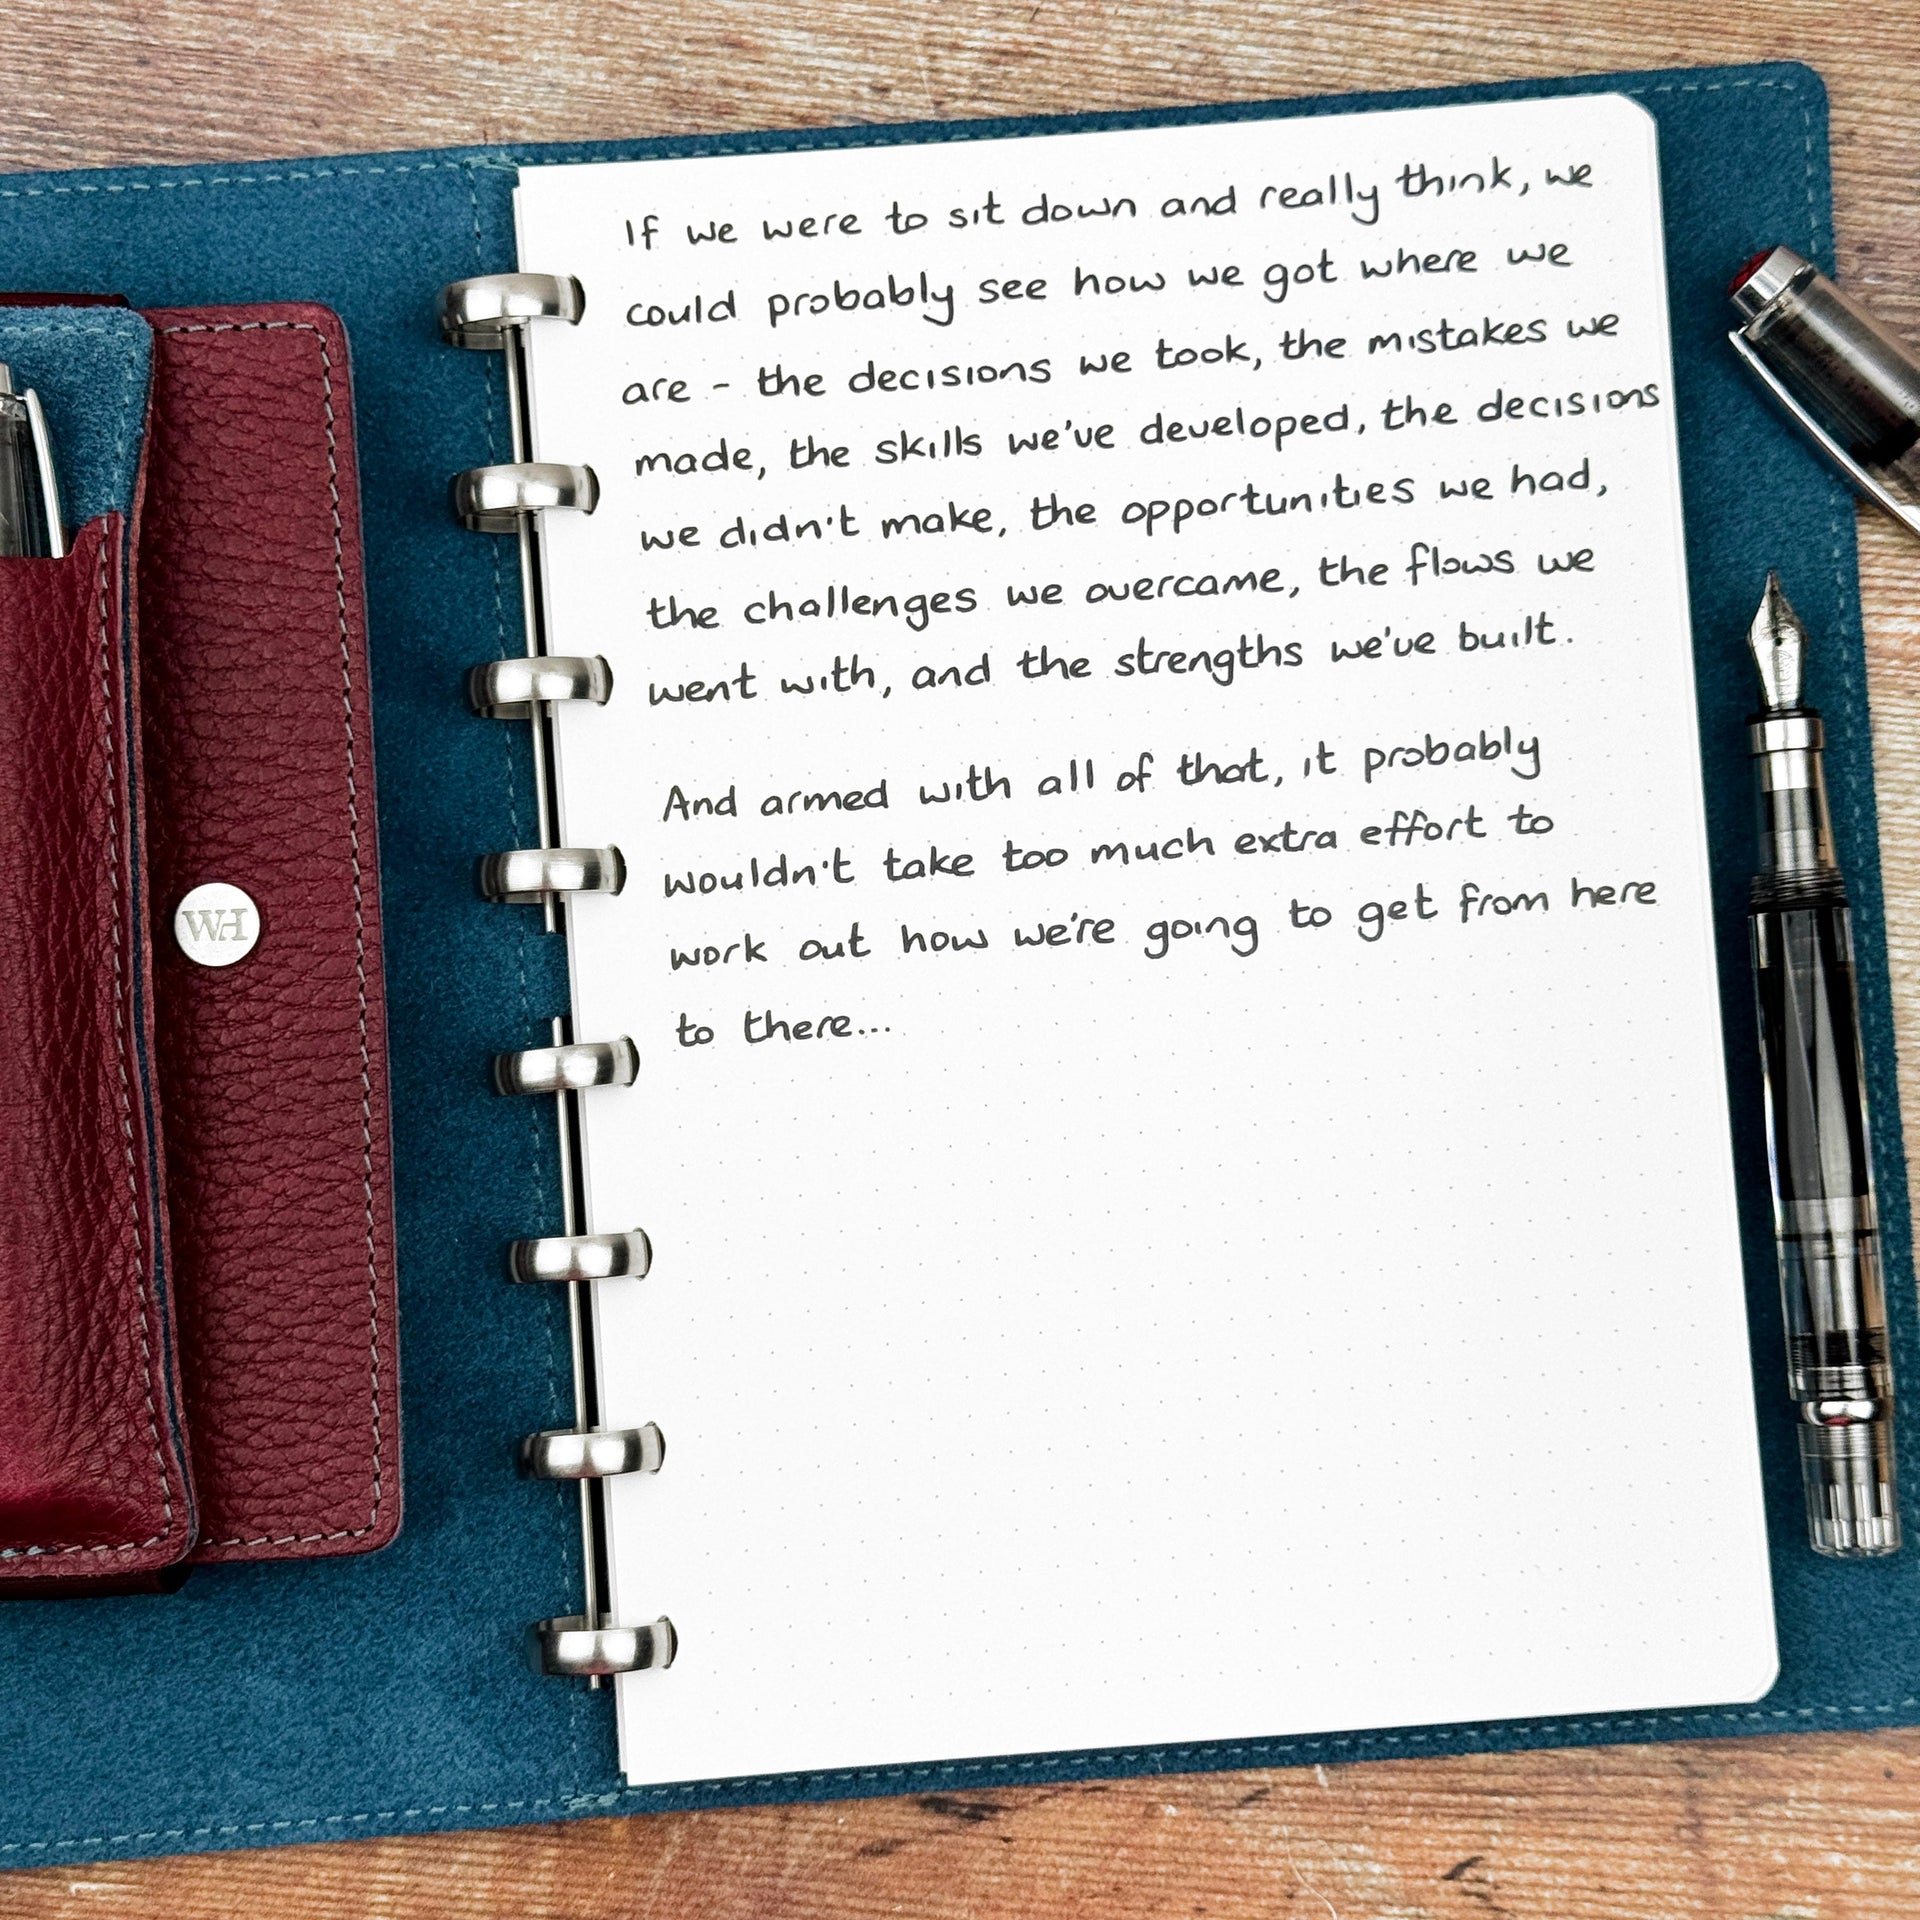 If we were to sit down and really think, we
could probably see how we got where we
are - the decisions we took, the mistakes we
made, the skills we've developed, the decisions
we didn't make, the opportunities we had,
the challenges we overcame, the flows we
went with, and the strengths we've built.
And armed with all of that, it probably
wouldn't take too much extra effort to
work out how we're going to get from here
to there...
WH